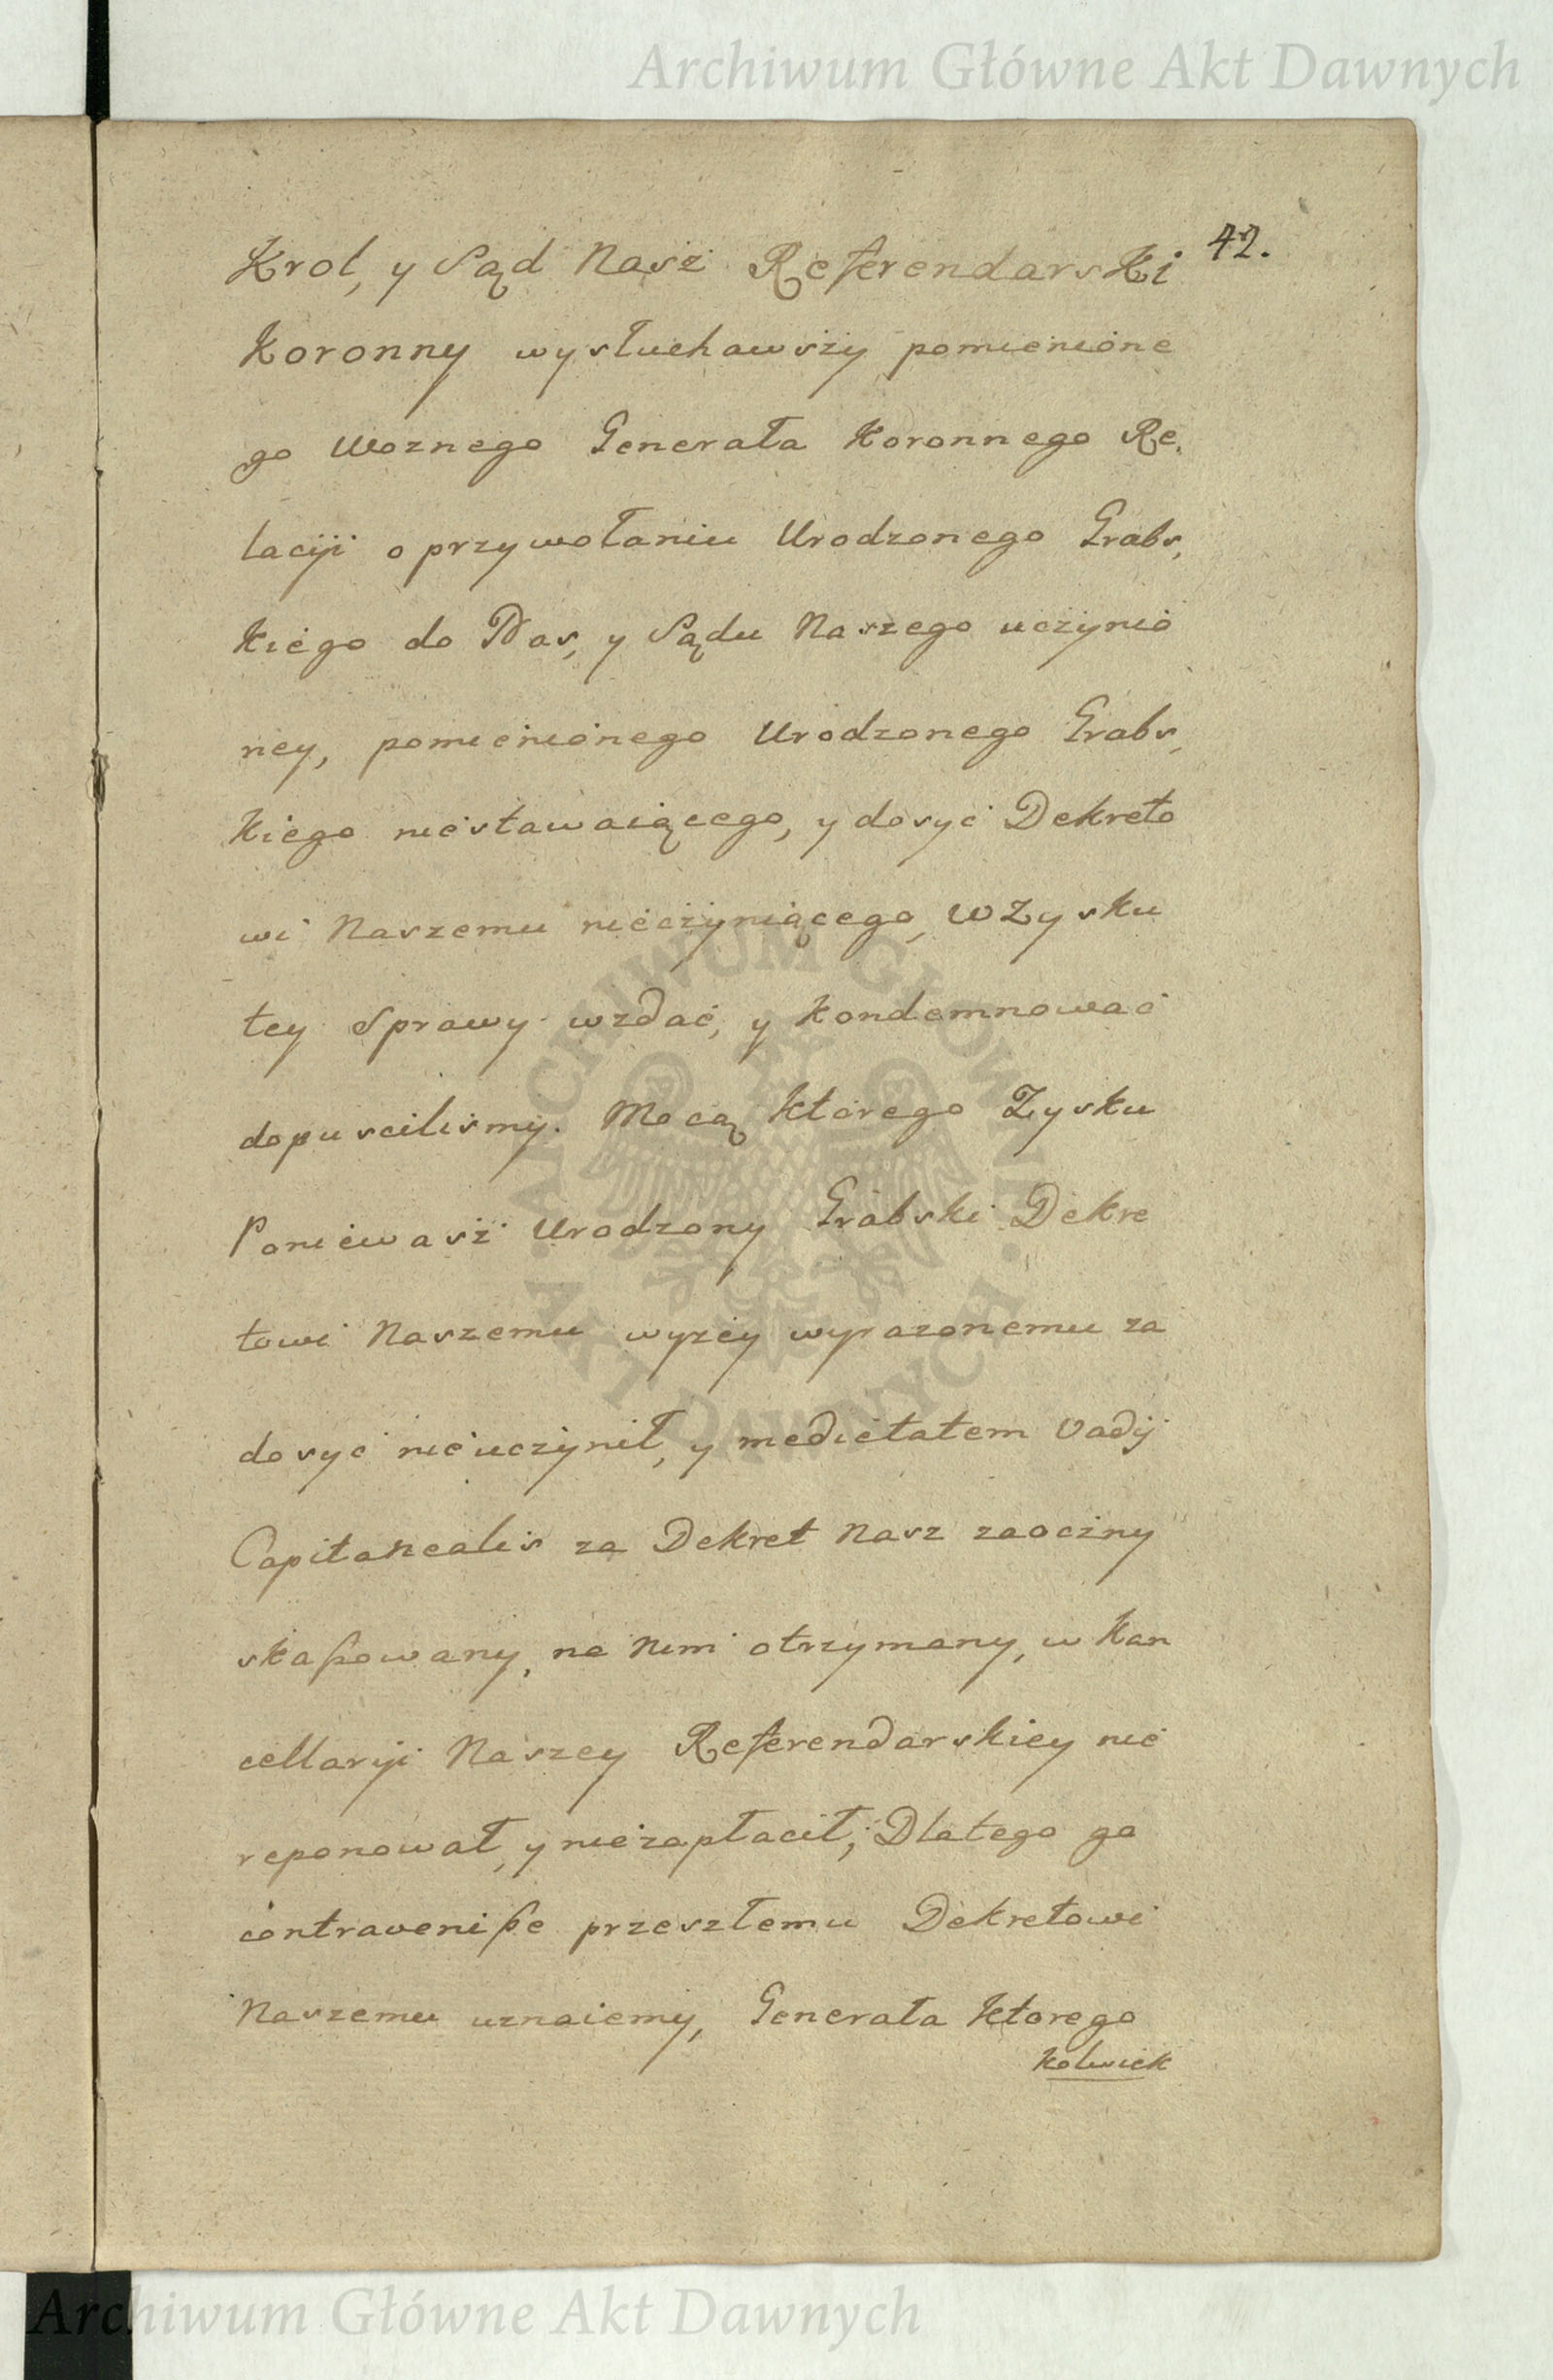 Archiwum Główne Akt Dawnych
42.
Krol, y Sąd Nasż Referendarski
Koronny wysłuchawszy pomienione
go Woznego Generała Koronnego Re,
laciji o przywołaniu Urodzonego Grabs,
kiego do Nas, y Sądu Naszego uczynio
ney, pomienionego Urodzonego Grabs,
kiego niestawaiącego, y dosyć Dekreto
wi Naszemu nieczyniącego, w Zysku
tey Sprawy wzdać, y kondemnować
dopuscilismy. Mocą ktorego Zysku
Poniewasż Urodzony Grabski Dekre
towi Naszemu wyżey wyrażonemu za
dosyć nieuczynił, y medietatem Vadij
Capitanealis za Dekret Nasz zaoczny
skaßowany, na Nim otrzymany, w Kan
cellaryi Naszey Referendarskiey nie
reponował, y niezapłacił, Dlatego go
contraveniße przeszłemu Dekretowi
Naszemu uznaiemy, Generała ktorego
kolwiek
ARCHIWUM GŁÓWNE AKT DAWNYCH
Archiwum Główne Akt Dawnych